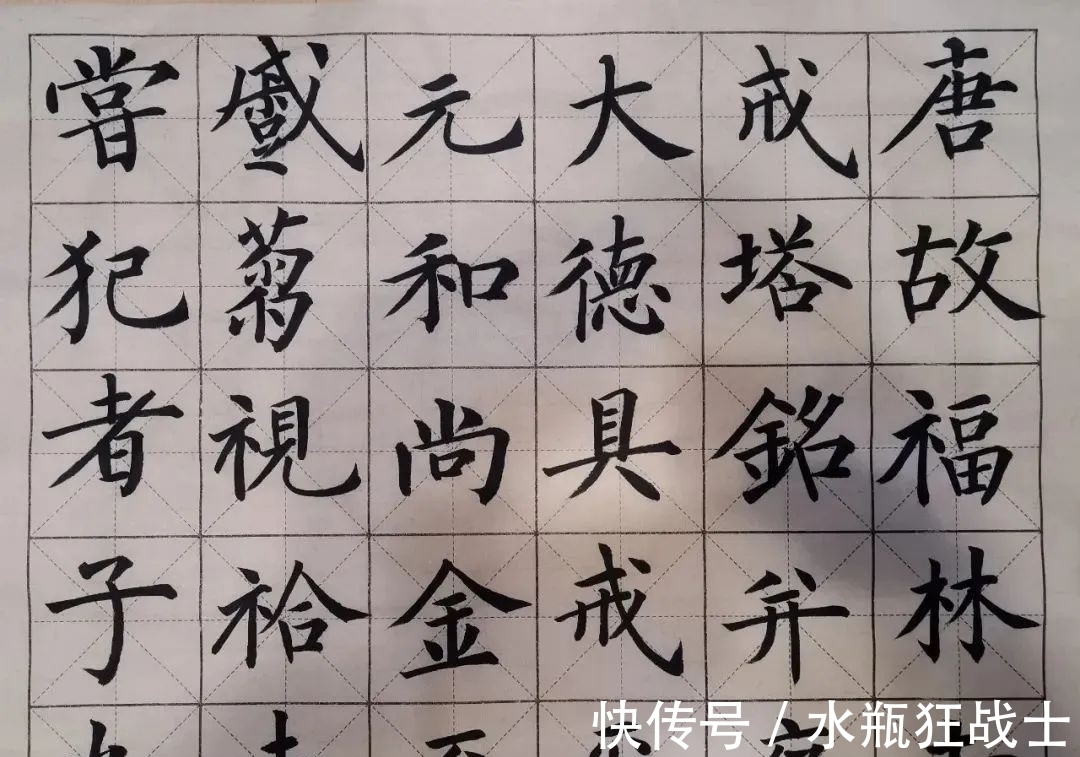 唐故福林
戒塔銘并
大德具戒
元和尚金
視祫
嘗犯者子
快传号 / 水瓶狂战士